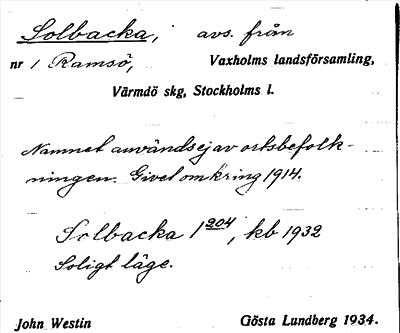 Solbacka, avs. från
nr 1 Ramsö, Vaxholms landsförsamling,
Värmdö skg, Stockholms l.
Namnet användsej av ortsbefolk-
ningen. Givet omkring 1914.
Solbacka 1 204, kb 1932
Soligt läge.
John Westin Gösta Lundberg 1934.